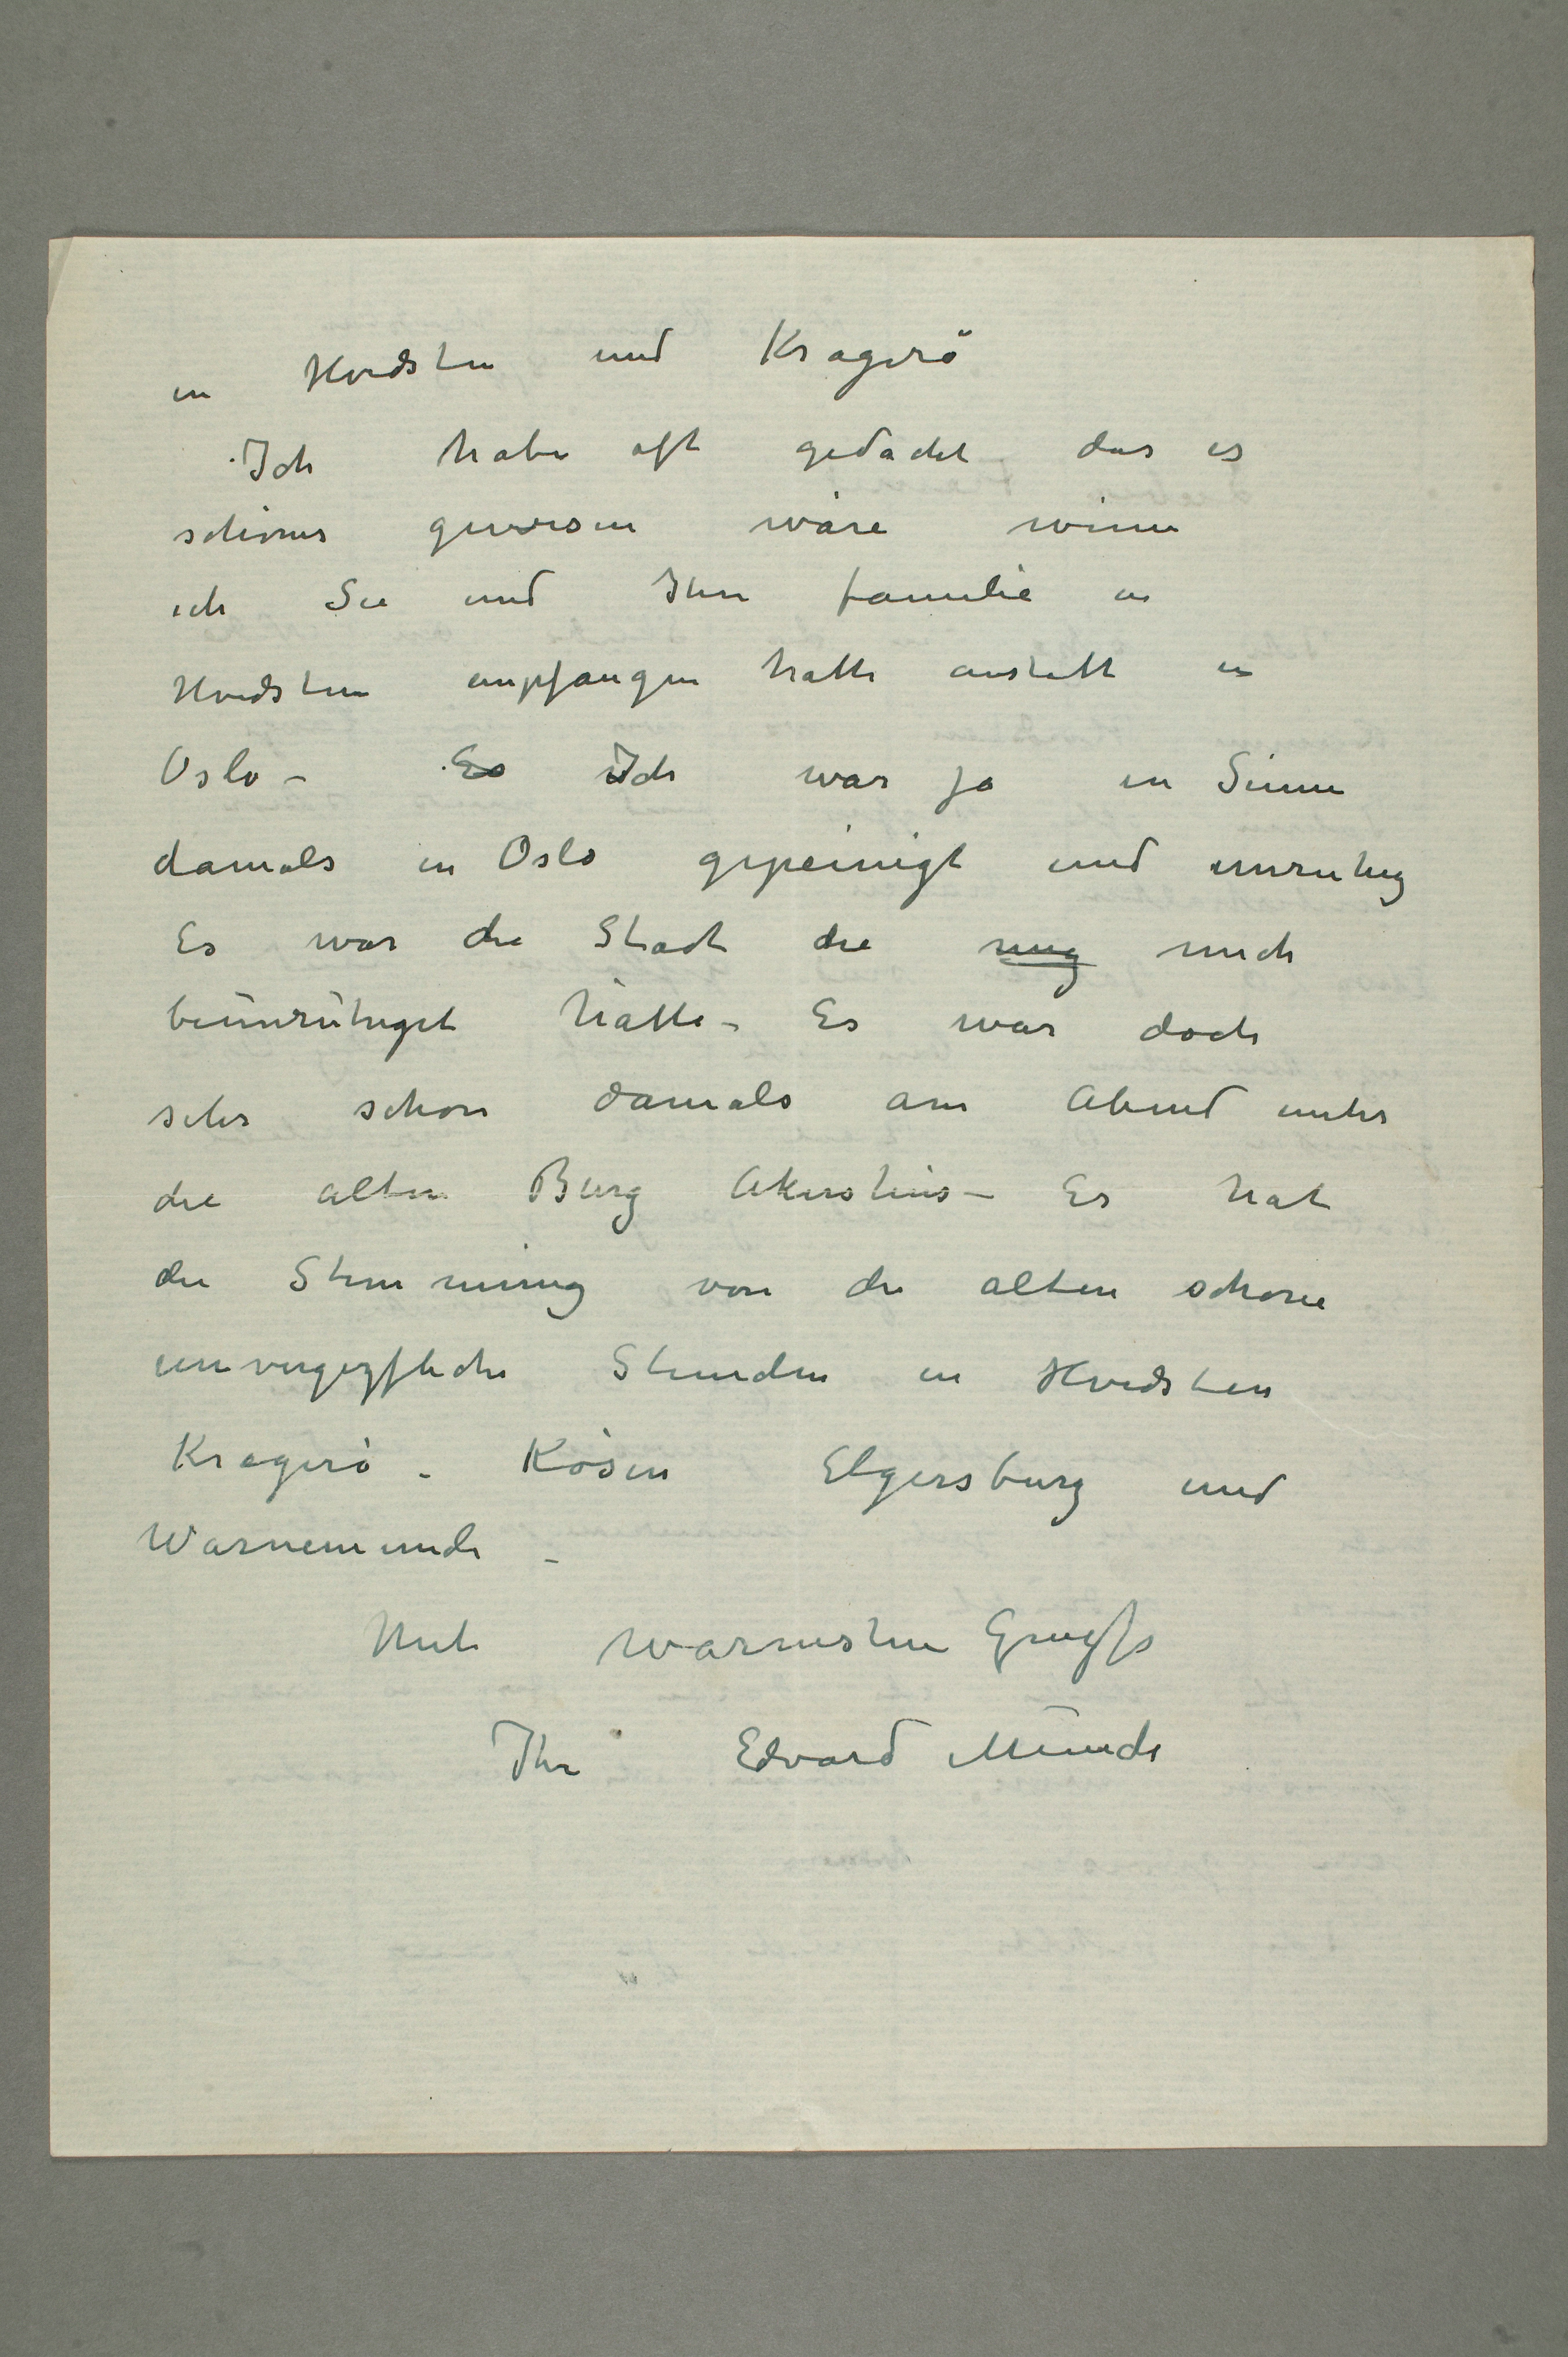 in Hvidsten und Kragerö
Ich habe oft gedacht das es
schöner gewesen wäre wenn
ich Sie und Ihre familie in
Hvidsten empfangen hatte anstatt in
Oslo – Es Ich war ja in Sinne
damals in Oslo gepeinigt und unruhig
Es war die Stadt die mig mich
beunruhiget hatte – Es war doch
sehr schön damals am Abend unter
die alten Burg Akershus – Es hat
die Stimmung von die alten schöne
unvergeßliche Stunden in Hvidsten
Kragerö – Kösen Elgersburg und
Warnemunde –
Mit warmsten Gruße
Ihr Edvard Munch